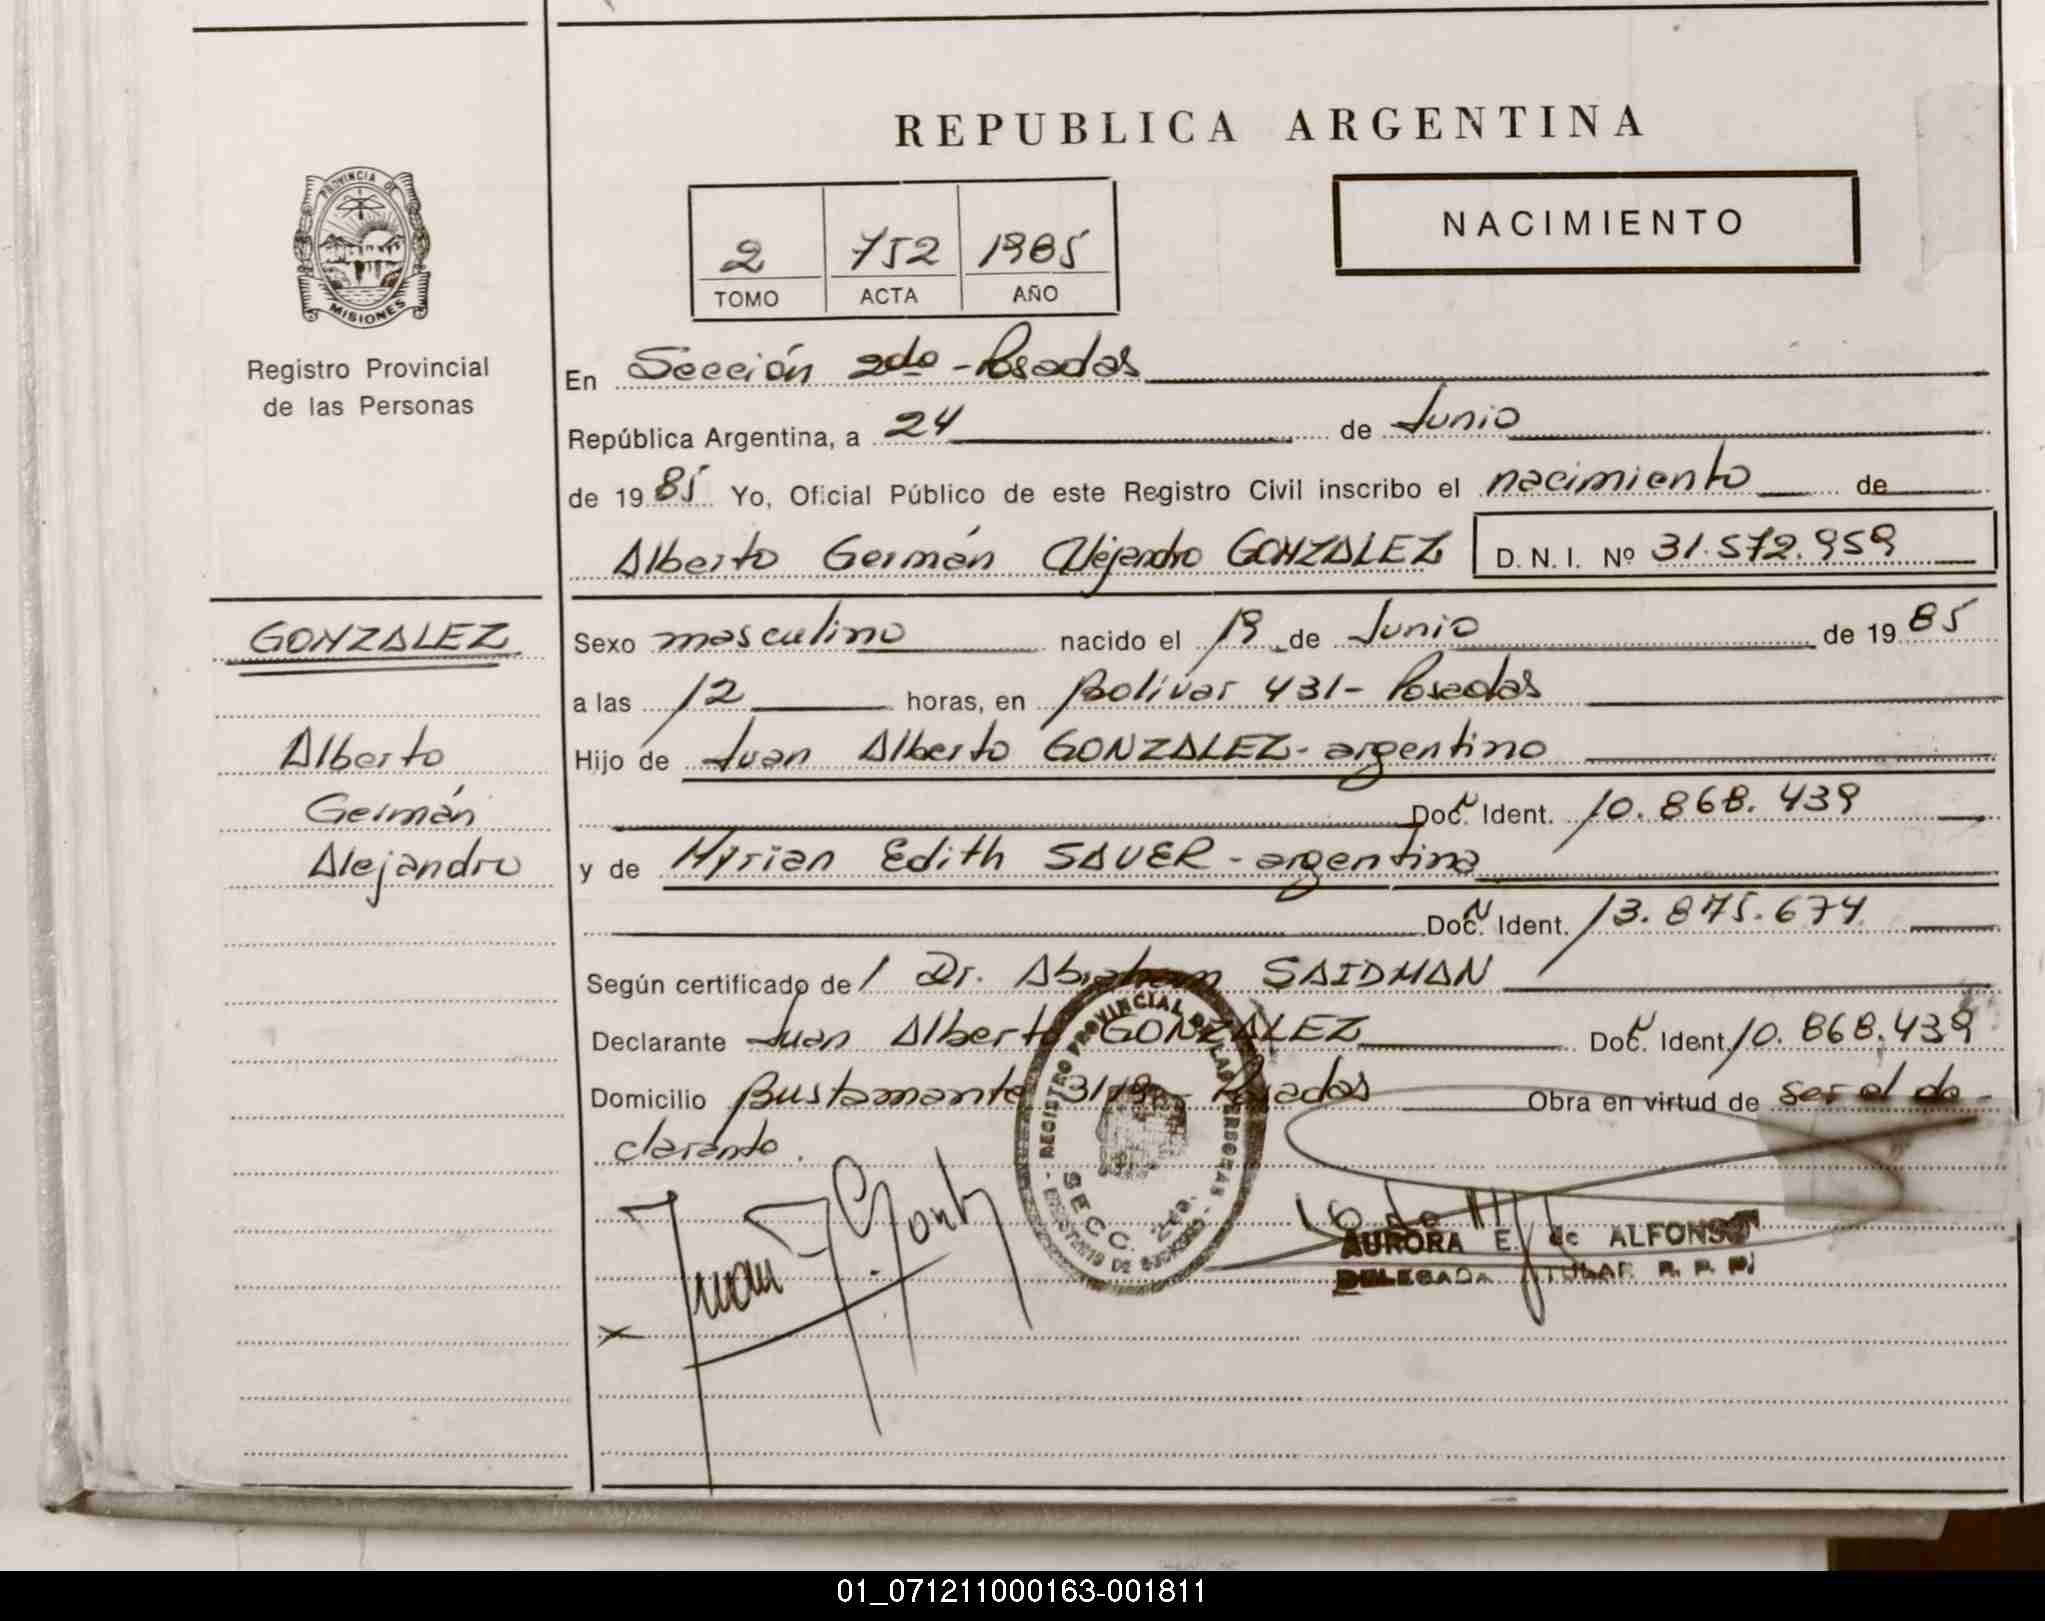 REPUBLICA ARGENTINA
PROVINCIA DE
MISIONES
Registro Provincial
de las Personas
2 752 1985
TOMO ACTA AÑO
NACIMIENTO
En Sección 2da - Posadas
República Argentina, a 24 de Junio
de 1985 Yo, Oficial Público de este Registro Civil inscribo el nacimiento de
Alberto Germán Alejandro GONZALEZ D. N. I. Nº 31.572.959
GONZALEZ
Alberto
Germán
Alejandro
Sexo masculino nacido el 19 de Junio de 1985
a las 12 horas, en Bolívar 431 - Posadas
Hijo de Juan Alberto GONZALEZ - argentino
Doc. Ident. 10.868.439
y de Myrian Edith SAUER - argentina
Doc. Ident. 13.875.674
Según certificado de / Dr. Abraham SAIDMAN
Declarante Juan Alberto GONZALEZ Doc. Ident. 10.868.439
Domicilio Bustamante Posadas Obra en virtud de ser el de-
clarante.
REGISTRO PROVINCIAL DE LAS PERSONAS
SECC. 2da.
Juan
AURORA E. de ALFONSO
DELEGADA TITULAR R. P. P.
01_071211000163-001811